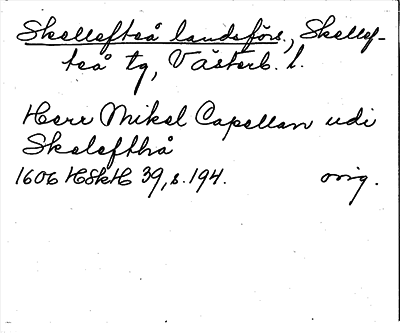 Skellefteå landsförs., Skellef-
teå tg, Västerb. l.
Herr Mikel Capellan udi
Skelefthå
1606 HSkH 39, s. 194. orig.